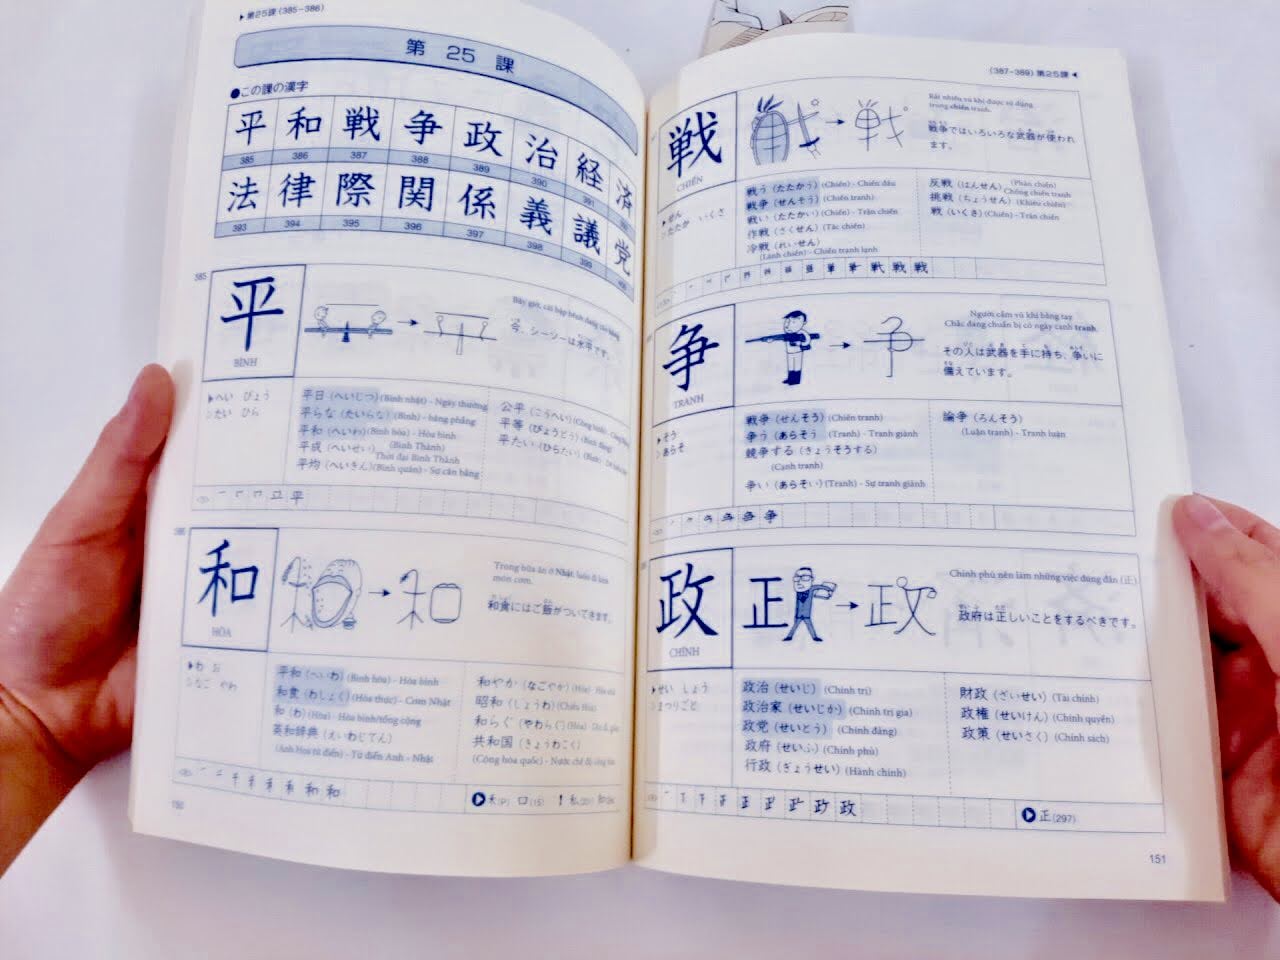 ▶第25課(385-386)
第 25 課
●この課の漢字
平 和 戦 争 政 治 経 済
385 386 387 388 389 390 391
法 律 際 関 係 義 議 党
393 394 395 396 397 398 399 400
385
平
BÌNH
今、シーソーは水平です。
▶へい びょう
▷たい ひら
平日(へいじつ)(Bình nhật) - Ngày thường
平らな(たいらな)(Bình) - bằng phẳng
平和(へいわ)(Bình hòa) - Hòa bình
平成(へいせい)(Bình Thành)
Thời đại Bình Thành
平均(へいきん)(Bình quân) - Sự cân bằng
公平(こうへい)(Công bình)
平等(びょうどう)(Bình đẳng)
平たい(ひらたい)(Bình)
一 平
386
和
HÒA
Trong bữa ăn ở Nhật, luôn đi kèm
món cơm.
和食にはご飯がついてきます。
▶わ お
▷なご やわ
平和(へいわ)(Bình hòa) - Hòa bình
和食(わしょく)(Hòa thực) - Cơm Nhật
和(わ)(Hòa) - Hòa bình/tổng cộng
英和辞典(えいわじてん)
(Anh Hòa từ điển) - Từ điển Anh - Nhật
和やか(なごやか)(Hòa)
昭和(しょうわ)(Chiêu Hòa)
和らぐ(やわらぐ)(Hòa)
共和国(きょうわこく)
(Cộng hòa quốc) - Nước chế độ cộng hòa
和 和
150
(387-389)第25課◀
戦
CHIẾN
Rất nhiều vũ khí được sử dụng
trong chiến tranh.
戦争ではいろいろな武器が使われ
ます。
▶せん
▷たたか いくさ
戦う(たたかう)(Chiến) - Chiến đấu
戦争(せんそう)(Chiến tranh)
戦い(たたかい)(Chiến) - Trận chiến
作戦(さくせん)(Tác chiến)
冷戦(れいせん)
(Lãnh chiến) - Chiến tranh lạnh
反戦(はんせん)(Phản chiến)
Chống chiến tranh
挑戦(ちょうせん)(Khiêu chiến)
戦(いくさ)(Chiến) - Trận chiến
戦 戦
争
TRANH
Người cầm vũ khí bằng tay
Chắc đang chuẩn bị có ngày cạnh tranh
その人は武器を手に持ち、争いに
備えています。
▶そう
▷あらそ
戦争(せんそう)(Chiến tranh)
争う(あらそう)(Tranh) - Tranh giành
競争する(きょうそうする)
(Cạnh tranh)
争い(あらそい)(Tranh) - Sự tranh giành
論争(ろんそう)
(Luận tranh) - Tranh luận
争
政
CHÍNH
正
Chính phủ nên làm những việc đúng đắn (正)
政府は正しいことをするべきです。
▶せい しょう
▷まつりごと
政治(せいじ)(Chính trị)
政治家(せいじか)(Chính trị gia)
政党(せいとう)(Chính đảng)
政府(せいふ)(Chính phủ)
行政(ぎょうせい)(Hành chính)
財政(ざいせい)(Tài chính)
政権(せいけん)(Chính quyền)
政策(せいさく)(Chính sách)
政 政
▶正(297)
151